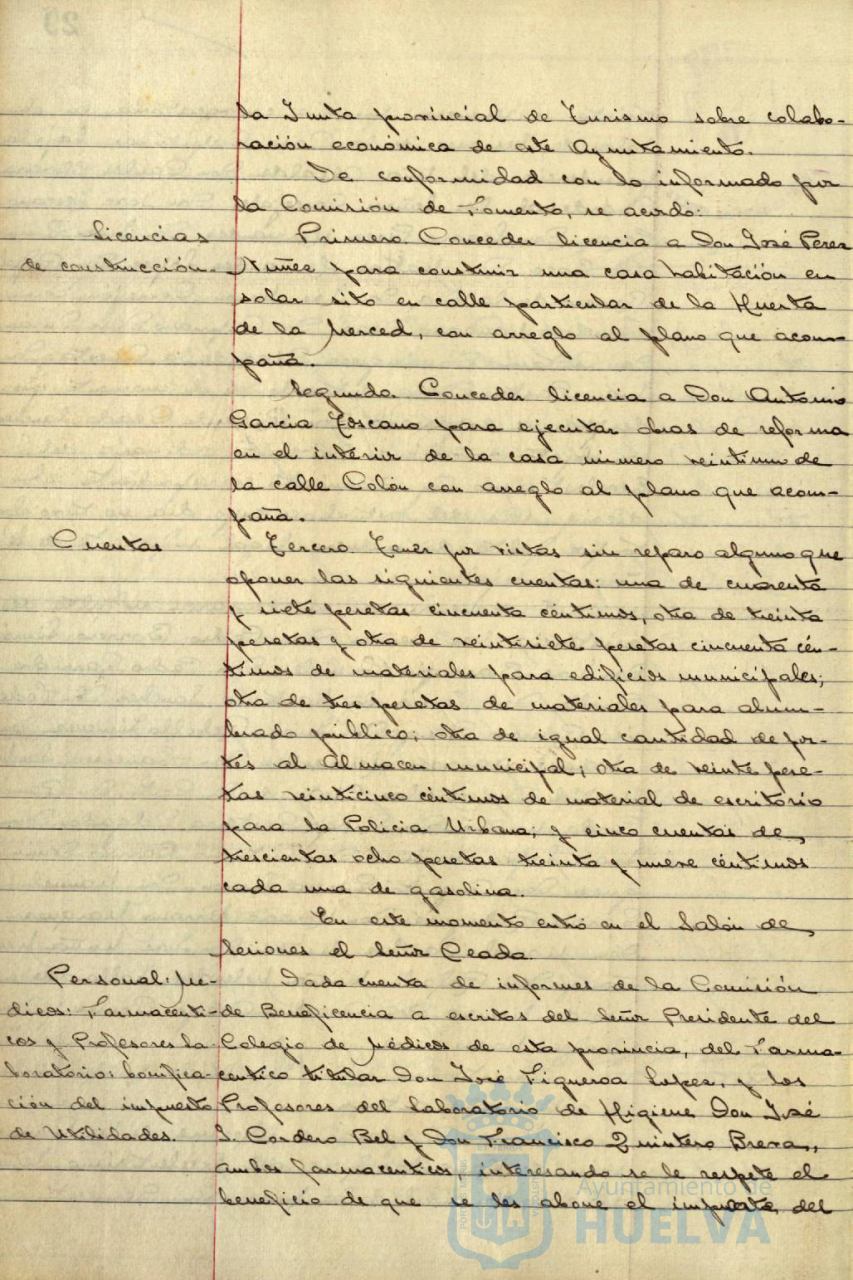 la Junta provincial de Turismo sobre colabo-
ración económica de este Ayuntamiento.
De conformidad con lo informado por
la Comisión de Fomento, se acordó:
Licencias
de construcción.
Primero. Conceder licencia a Don José Perez
Nuñez para construir una casa habitación en
solar sito en calle particular de la Huerta
de la Merced, con arreglo al plano que acom-
paña.
Segundo. Conceder licencia a Don Antonio
García Toscano para ejecutar obras de reforma
en el interior de la casa número veintiuno de
la calle Colón con arreglo al plano que acom-
paña.
Cuentas
Tercero. Tener por vistas sin reparo alguno que
oponer las siguientes cuentas: una de cuarenta
y siete pesetas cincuenta céntimos, otra de treinta
pesetas y otra de veintisiete pesetas cincuenta cén-
timos de materiales para edificios municipales;
otra de tres pesetas de materiales para alum-
brado público; otra de igual cantidad de por-
tes al Almacen municipal; otra de veinte pese-
tas veinticinco céntimos de material de escritorio
para la Policia Urbana; y cinco cuentas de
trescientas ocho pesetas treinta y nueve céntimos
cada una de gasolina.
En este momento entró en el Salón de
Sesiones el Señor Ceada.
Personal: Mé-
dicos: Farmacéuti-
cos y Profesores La-
boratorio: bonifica-
ción del impuesto
de Utilidades.
Dada cuenta de informes de la Comisión
de Beneficencia a escritos del Señor Presidente del
Colegio de Médicos de esta provincia, del Farma-
ceutico titular Don José Figueroa Lopez, y los
Profesores del Laboratorio de Higiene Don José
J. Cordero Bel y Don Francisco Quintero Breva,
ambos farmaceuticos, interesando se le respete el
beneficio de que se les abone el importe del
Ayuntamiento de
HUELVA